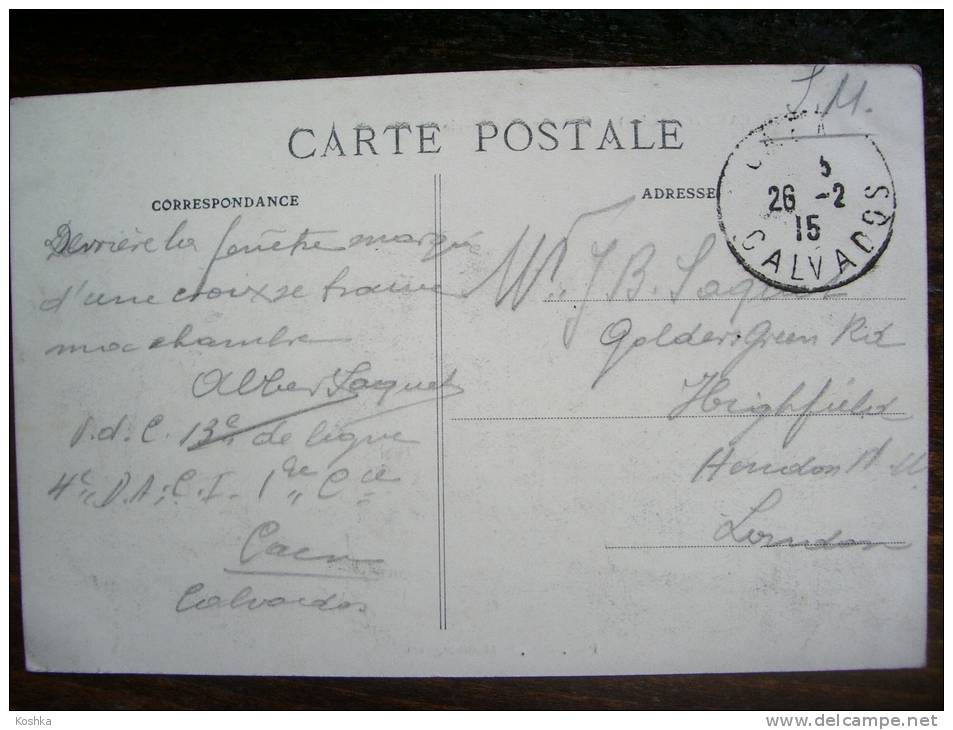 S.M.
CARTE POSTALE
CAEN
5
26 -2
15
CALVADOS
CORRESPONDANCE
Derrière la fenêtre marquée
d'une croix se trouve
ma chambre
Albert Jaquet
13e de ligne
4e D.A.C.I. 1re Cie
Caen
Calvados
ADRESSE
J B. Jaquet
Golders Green Rd
Highfield
Hendon
London
Koshka
www.delcampe.net